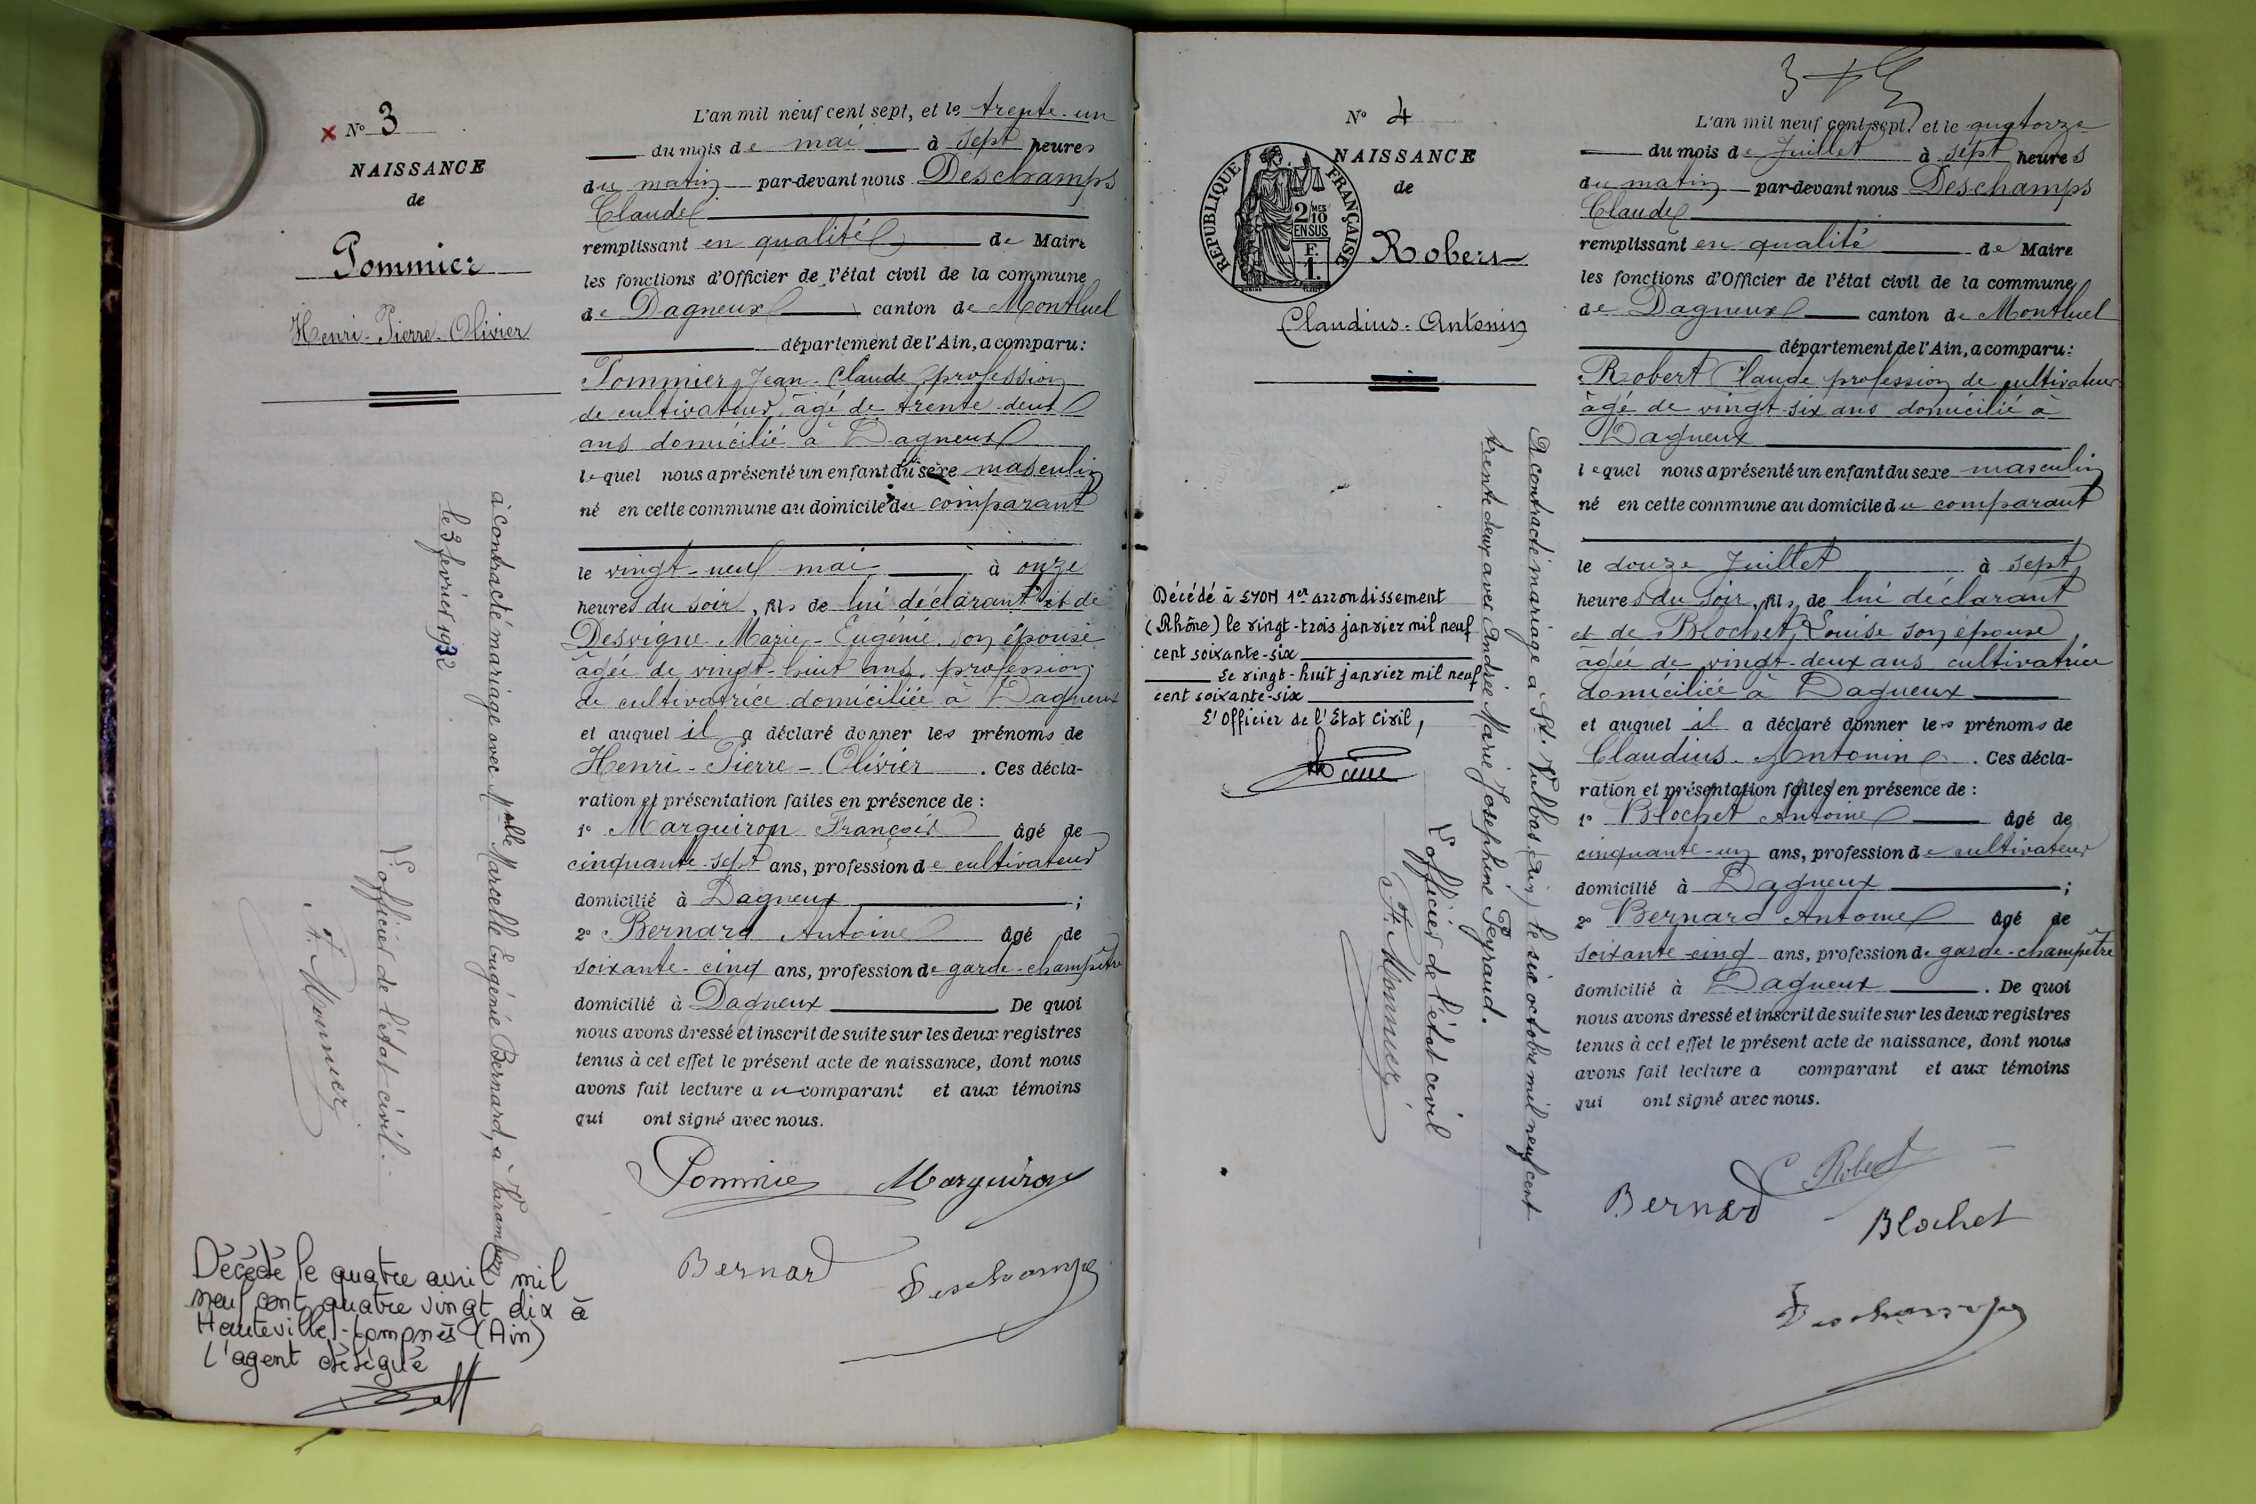 N° 3
NAISSANCE
de
Pommier
Henri-Pierre-Olivier
à contracté mariage avec Melle Marcelle Eugénie Bernard, à Varambon
le 3 février 1932
L'officier de l'état-civil.
F. Monnier
Décédé le quatre avril mil
neuf cent quatre vingt dix à
Hauteville-Lompnès (Ain)
L'agent délégué
L'an mil neuf cent sept, et le trente-un
du mois de mai à sept heures
du matin par-devant nous Deschamps
Claude
remplissant en qualité de Maire
les fonctions d'Officier de l'état civil de la commune
de Dagneux canton de Montluel
département de l'Ain, a comparu:
Pommier, Jean-Claude, profession
de cultivateur, âgé de trente-deux
ans domicilié à Dagneux
lequel nous a présenté un enfant du sexe masculin
né en cette commune au domicile du comparant
le vingt-neuf mai à onze
heures du soir, fils de lui déclarant et de
Desvigne Marie-Eugénie son épouse
âgée de vingt-huit ans, profession
de cultivatrice domiciliée à Dagneux
et auquel il a déclaré donner les prénoms de
Henri-Pierre-Olivier. Ces décla-
ration et présentation faites en présence de :
1° Marguiron François âgé de
cinquante-sept ans, profession de cultivateur
domicilié à Dagneux ;
2° Bernard Antoine âgé de
soixante-cinq ans, profession de garde-champêtre
domicilié à Dagneux De quoi
nous avons dressé et inscrit de suite sur les deux registres
tenus à cet effet le présent acte de naissance, dont nous
avons fait lecture au comparant et aux témoins
qui ont signé avec nous.
Pommier Marguiron
Bernard Deschamps
N° 4
NAISSANCE
de
RÉPUBLIQUE FRANÇAISE
2 MES
10
EN SUS
F.
1.
Robert
Claudius-Antonin
A contracté mariage à St. Vulbas (Ain) le six octobre mil neuf cent
trente deux avec Andrée Marie Josephine Peyraud.
L'officier de l'état civil
F. Monnier
Décédé à LYON 1er arrondissement
(Rhône) le vingt-trois janvier mil neuf
cent soixante-six
Le vingt-huit janvier mil neuf
cent soixante-six
L'Officier de l'Etat Civil,
L'an mil neuf cent sept, et le quatorze
du mois de Juillet à sept heures
du matin par-devant nous Deschamps
Claude
remplissant en qualité de Maire
les fonctions d'Officier de l'état civil de la commune
de Dagneux canton de Montluel
département de l'Ain, a comparu:
Robert Claude profession de cultivateur
âgé de vingt-six ans domicilié à
Dagneux
lequel nous a présenté un enfant du sexe masculin
né en cette commune au domicile du comparant
le douze Juillet à sept
heures du soir, fils de lui déclarant
et de Blochet, Louise son épouse,
âgée de vingt-deux ans cultivatrice
domiciliée à Dagneux
et auquel il a déclaré donner les prénoms de
Claudius-Antonin. Ces décla-
ration et présentation faites en présence de :
1° Blochet Antoine âgé de
cinquante-un ans, profession de cultivateur
domicilié à Dagneux ;
2° Bernard Antoine âgé de
soixante-cinq ans, profession de garde-champêtre
domicilié à Dagneux. De quoi
nous avons dressé et inscrit de suite sur les deux registres
tenus à cet effet le présent acte de naissance, dont nous
avons fait lecture a comparant et aux témoins
qui ont signé avec nous.
C Robert
Bernard Blochet
Deschamps